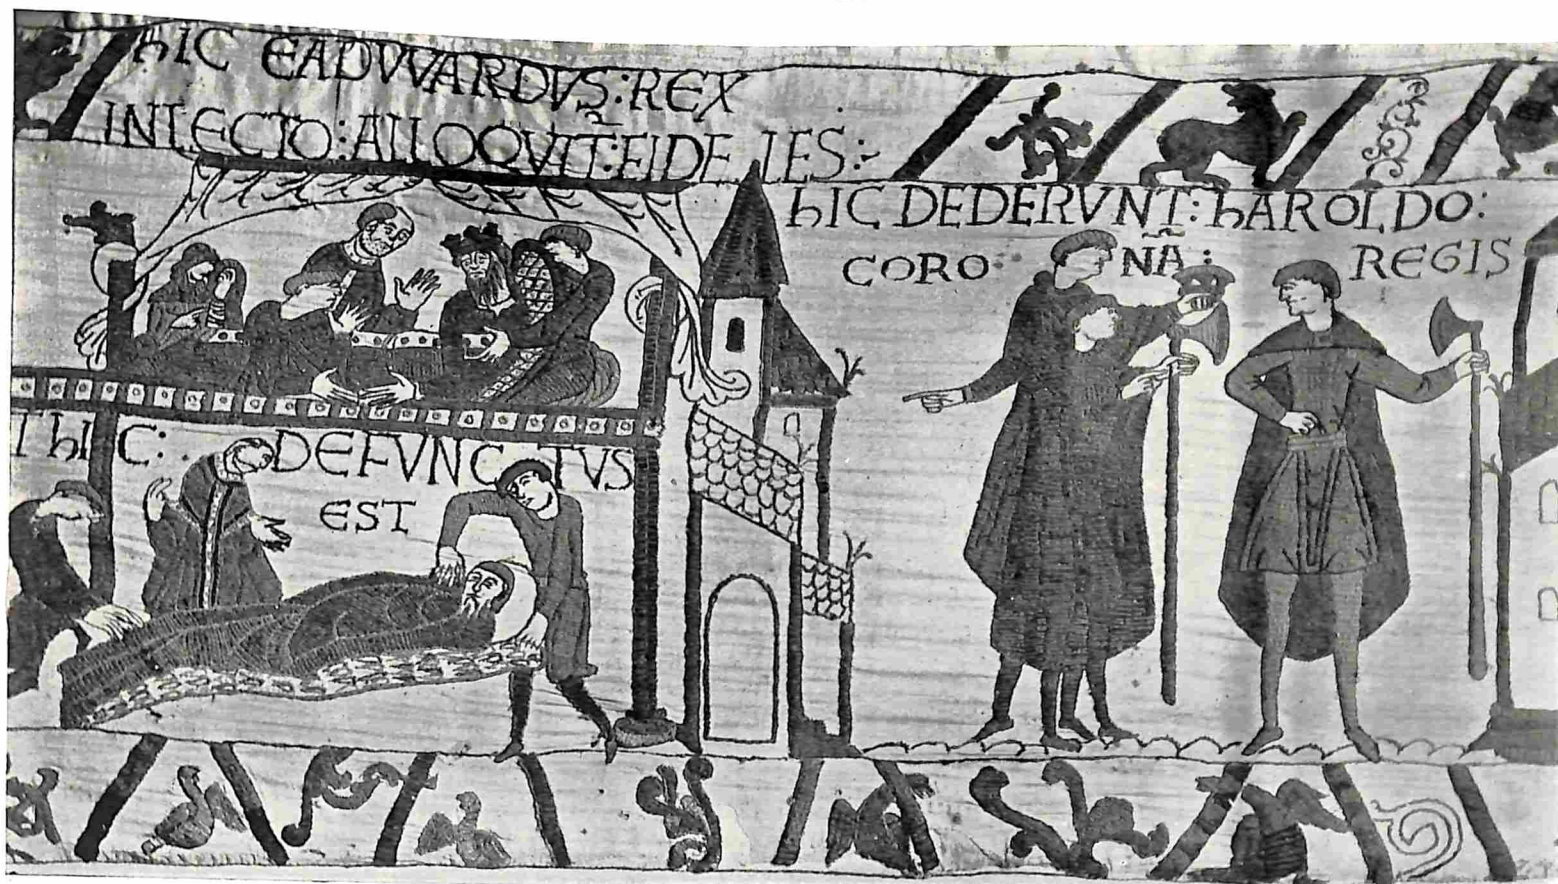 hIC EADVVARDVS: REX
INLECTO: ALLOQVIT: FIDELES:
hIC DEDERVNT: hAROLDO:
CORONA: REGIS
T hIC: DEFVNCTVS
EST